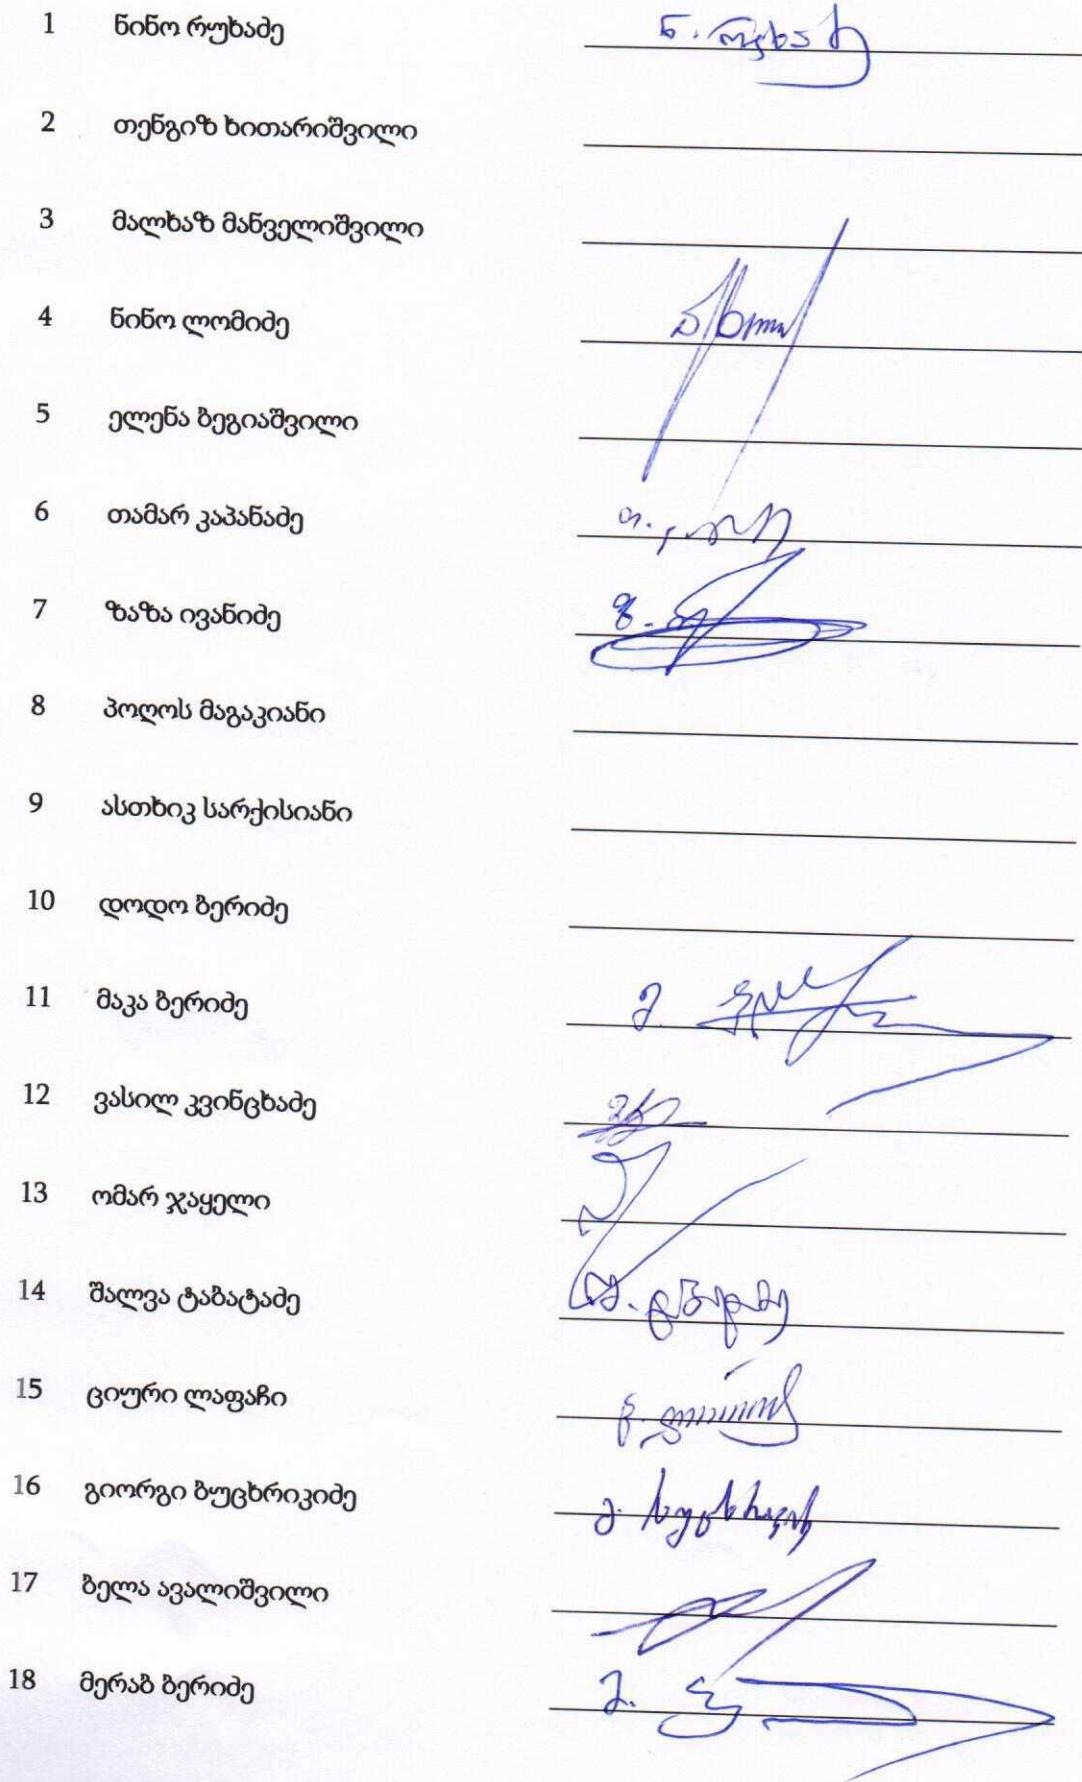 1 ნინო რუხაძე ნ. რუხაძე
2 თენგიზ ხითარიშვილი
3 მალხაზ მანველიშვილი
4 ნინო ლომიძე
5 ელენა ბეგიაშვილი
6 თამარ კაპანაძე თ.
7 ზაზა ივანიძე ზ.
8 პოღოს მაგაკიანი
9 ასთხიკ სარქისიანი
10 დოდო ბერიძე
11 მაკა ბერიძე მ.
12 ვასილ კვინცხაძე
13 ომარ ჯაყელი
14 შალვა ტაბატაძე შ. ტაბატაძე
15 ციური ლაფაჩი ც.
16 გიორგი ბუცხრიკიძე გ. ბუცხრიკიძე
17 ბელა ავალიშვილი
18 მერაბ ბერიძე მ.